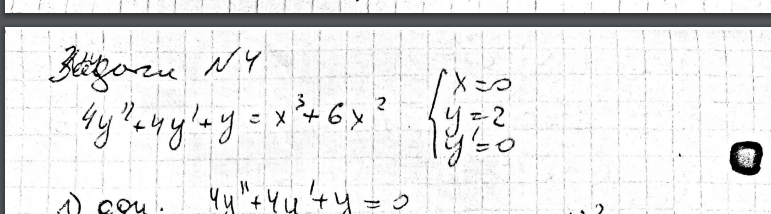 Задача №4
4y''+4y'+y = x³+6x² { x=0
y=2
y'=0
1) 4y''+4y'+y = 0